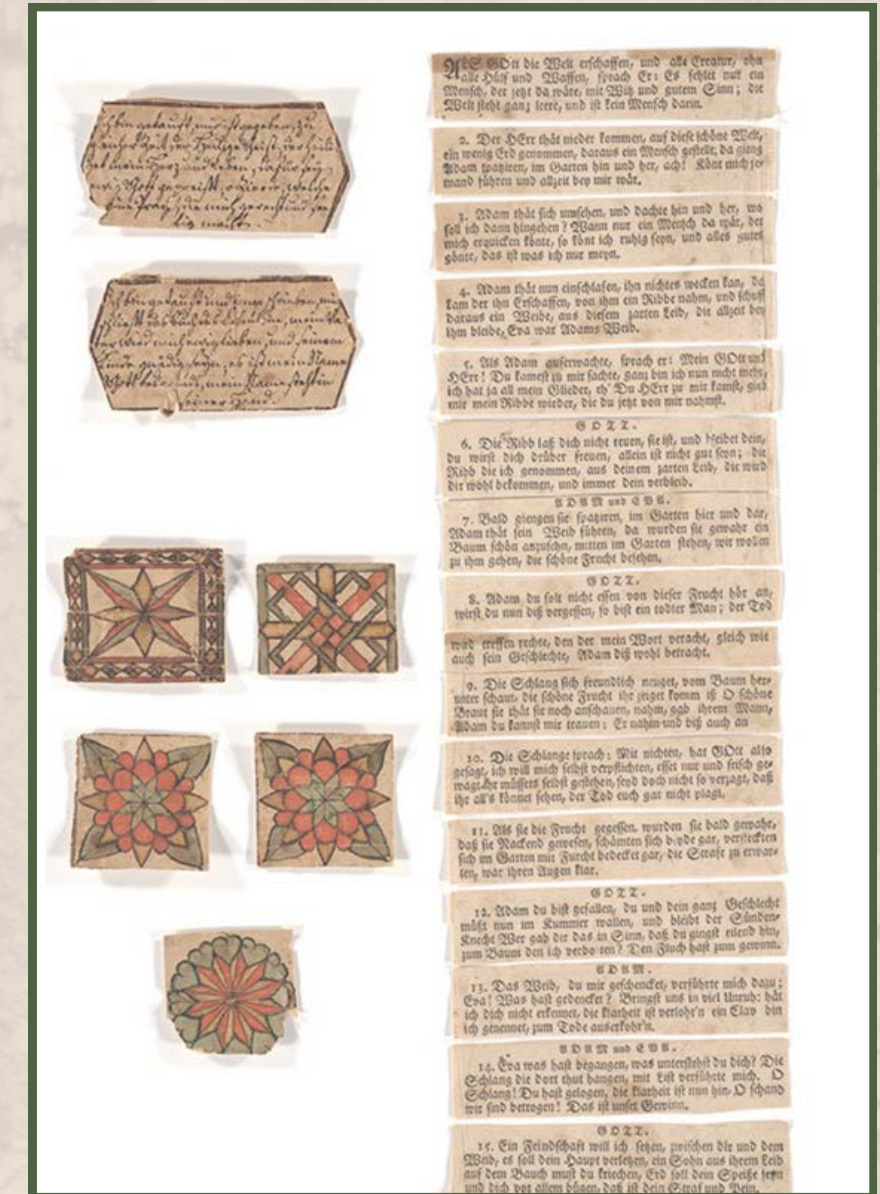 Ich bin getauft, mir ist gegeben, zu
gleicher Zeit der Heilige Geist, der heili
get mein Herz und Leben, dafür sey
ewig Gott gepreißt, o Zierde, welche
Pracht, die mich gerecht und se
lig macht.
Ich bin getauft und eingeschrieben,
das Buch des Lebens ein, mein Va
ter wird mich ewig lieben, und seinem
Kinde gnädig seyn, es ist mein Name
Gott bekant, mein Name steht in
seiner Hand.
Als GOtt die Welt erschaffen, und alle Creatur, ohn
alle Hülf und Waffen, sprach Er: Es fehlet nur ein
Mensch, der jetzt da wäre, mit Witz und gutem Sinn; die
Welt steht ganz leere, und ist kein Mensch darin.
2. Der HErr thät nieder kommen, auf diese schöne Welt,
ein wenig Erd genommen, daraus ein Mensch gestellt, da gieng
Adam spatziren, im Garten hin und her, ach! Könt mich je-
mand führen und allzeit bey mir wär.
3. Adam thät sich umsehen, und dachte hin und her, wo
soll ich dann hingehen? Wann nur ein Mensch da wär, der
mich erquicken könte, so könt ich ruhig seyn, und alles gutes
gönte, das ist was ich nur meyn.
4. Adam thät nun einschlafen, ihn nichtes wecken kan, da
kam der ihn Erschaffen, von ihm ein Ribbe nahm, und schuff
daraus ein Weibe, aus diesem zarten Leib, die allzeit bey
ihm bleibe, Eva war Adams Weib.
5. Als Adam auferwachte, sprach er: Mein GOtt und
HErr! Du kamest zu mir sachte, ganz bin ich nun nicht mehr,
ich hat ja all mein Glieder, eh' Du HErr zu mir kamst, gieb
mir mein Ribbe wieder, die du jetzt von mir nahmst.
GOTT.
6. Die Ribb laß dich nicht reuen, sie ist, und bleibet dein,
du wirst dich drüber freuen, allein ist nicht gut seyn; die
Ribb die ich genommen, aus deinem zarten Leib, die wird
dir wohl bekommen, und immer dein verbleib.
ADAM und EVA.
7. Bald giengen sie spatziren, im Garten hier und dar,
Adam thät sein Weib führen, da wurden sie gewahr ein
Baum schön anzusehn, mitten im Garten stehen, wir wollen
zu ihm gehen, die schöne Frucht besehen.
GOTT.
8. Adam du solt nicht essen von dieser Frucht hör an,
wirst du nun diß vergessen, so bist ein todter Man; der Tod
wird treffen rechte, den der mein Wort veracht, gleich wie
auch sein Geschlechte, Adam diß wohl betracht.
9. Die Schlang sich freundlich neuget, vom Baum her-
unter schaut, die schöne Frucht ihr zeiget komm iß O schöne
Braut sie thät sie noch anschauen, nahm, gab ihrem Mann,
Adam du kannst mir trauen: Er nahm und biß auch an
10. Die Schlange sprach: Mit nichten, hat GOtt also
gesagt, ich will mich selbst verpflichten, esset nur und frisch ge-
wagt ihr müssets selbst gestehen, seyd doch nicht so verzagt, daß
ihr all's könnet sehen, der Tod euch gar nicht plagt.
11. Als sie die Frucht gegessen, wurden sie bald gewahr,
daß sie Nackend gewesen, schämten sich beyde gar, versteckten
sich im Garten mit Furcht bedecket gar, die Strafe zu erwar-
ten, war ihren Augen klar.
GOTT.
12. Adam du bist gefallen, du und dein ganz Geschlecht
müßt nun im Kummer wallen, und bleibt der Sünden-
Knecht Wer gab dir das in Sinn, daß du gingst eilend hin,
zum Baum den ich verboten? Den Fluch hast zum gewinn.
ADAM.
13. Das Weib, du mir geschencket, verführte mich dazu;
Eva! Was hast gedencket? Bringst uns in viel Unruh: hät
ich dich nicht erkennet, die klarheit ist verlohr'n ein Clav bin
ich genennet, zum Tode auserkohr'n.
ADAM und EVA.
14. Eva was hast begangen, was unterstehst du dich? Die
Schlang die dort thut hangen, mit List verführte mich. O
Schlang! Du hast gelogen, die klarheit ist nun hin, O schand
wir sind betrogen! Das ist unser Gewinn.
GOTT.
15. Ein Feindschaft will ich setzen, zwischen dir und dem
Weib, es soll dein Haupt verletzen, ein Sohn aus ihrem Leib
auf dem Bauch must du kriechen, Erd soll dein Speiße seyn
und dich vor allem bügen, daß ist dein Straf und Pein.